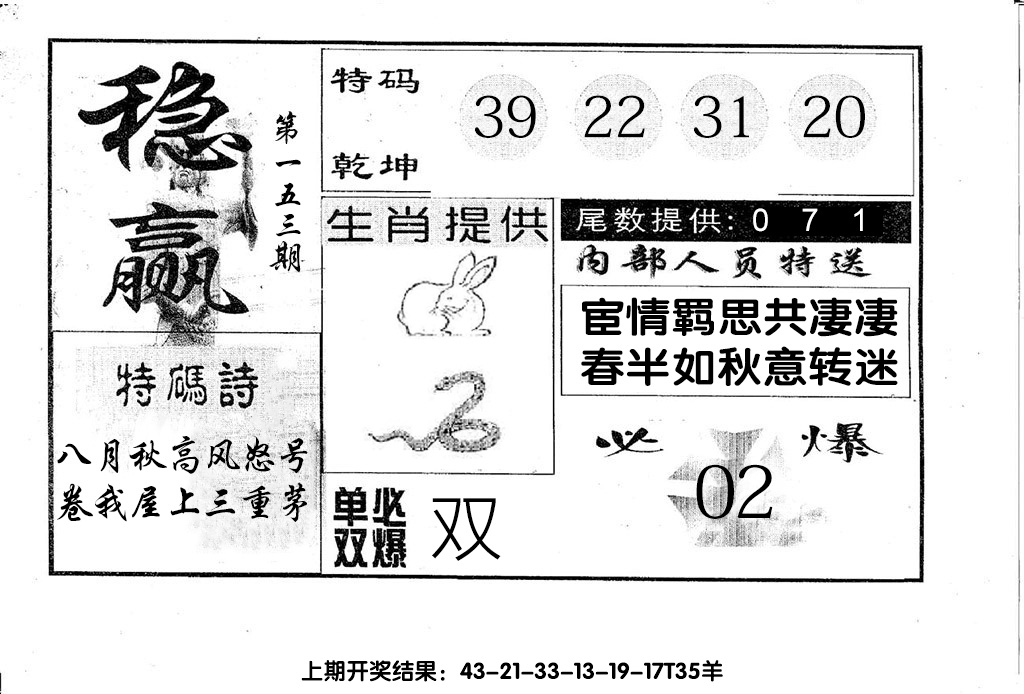 稳赢
第一五三期
特码
乾坤
39 22 31 20
生肖提供
尾数提供: 0 7 1
内部人员特送
宦情羁思共凄凄
春半如秋意转迷
特碼詩
八月秋高风怒号
卷我屋上三重茅
单双
必爆
双
必爆
02
上期开奖结果：43-21-33-13-19-17T35羊